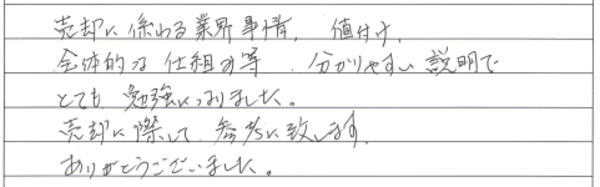 売却に係わる業界事情、値付け、
全体的な仕組み等、分かりやすい説明で
とても勉強になりました。
売却に際して参考に致します。
ありがとうございました。